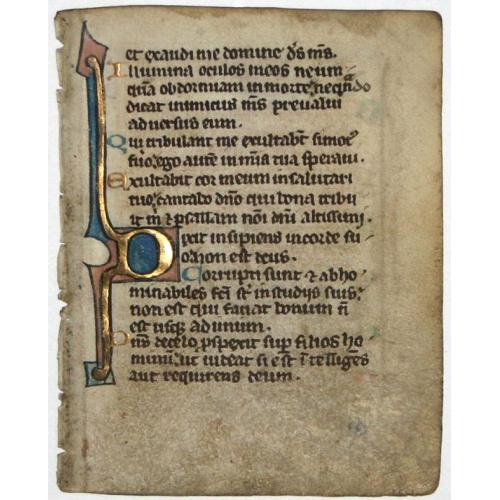 et exaudi me domine ds ms.
Illumina oculos meos ne um
qua obdormiam in morte nequando
dicat inimicus ms prevalui
adversus eum.
Qui tribulant me exultabt si motꝰ
fuo ego aute in mia tua speravi.
Exultabit cor meum in salutari
tuo cantabo dno qui bona tribu
it m ⁊ psallam noi dni altissimi.
Dixit insipiens in corde su
o non est deus.
Corrupti sunt ⁊ abho
minabiles fci st in studijs suis
non est qui faciat bonum n
est usq ad unum.
Dns de celo pspexit sup filios ho
minu ut videat si est itelliges
aut requirens deum.